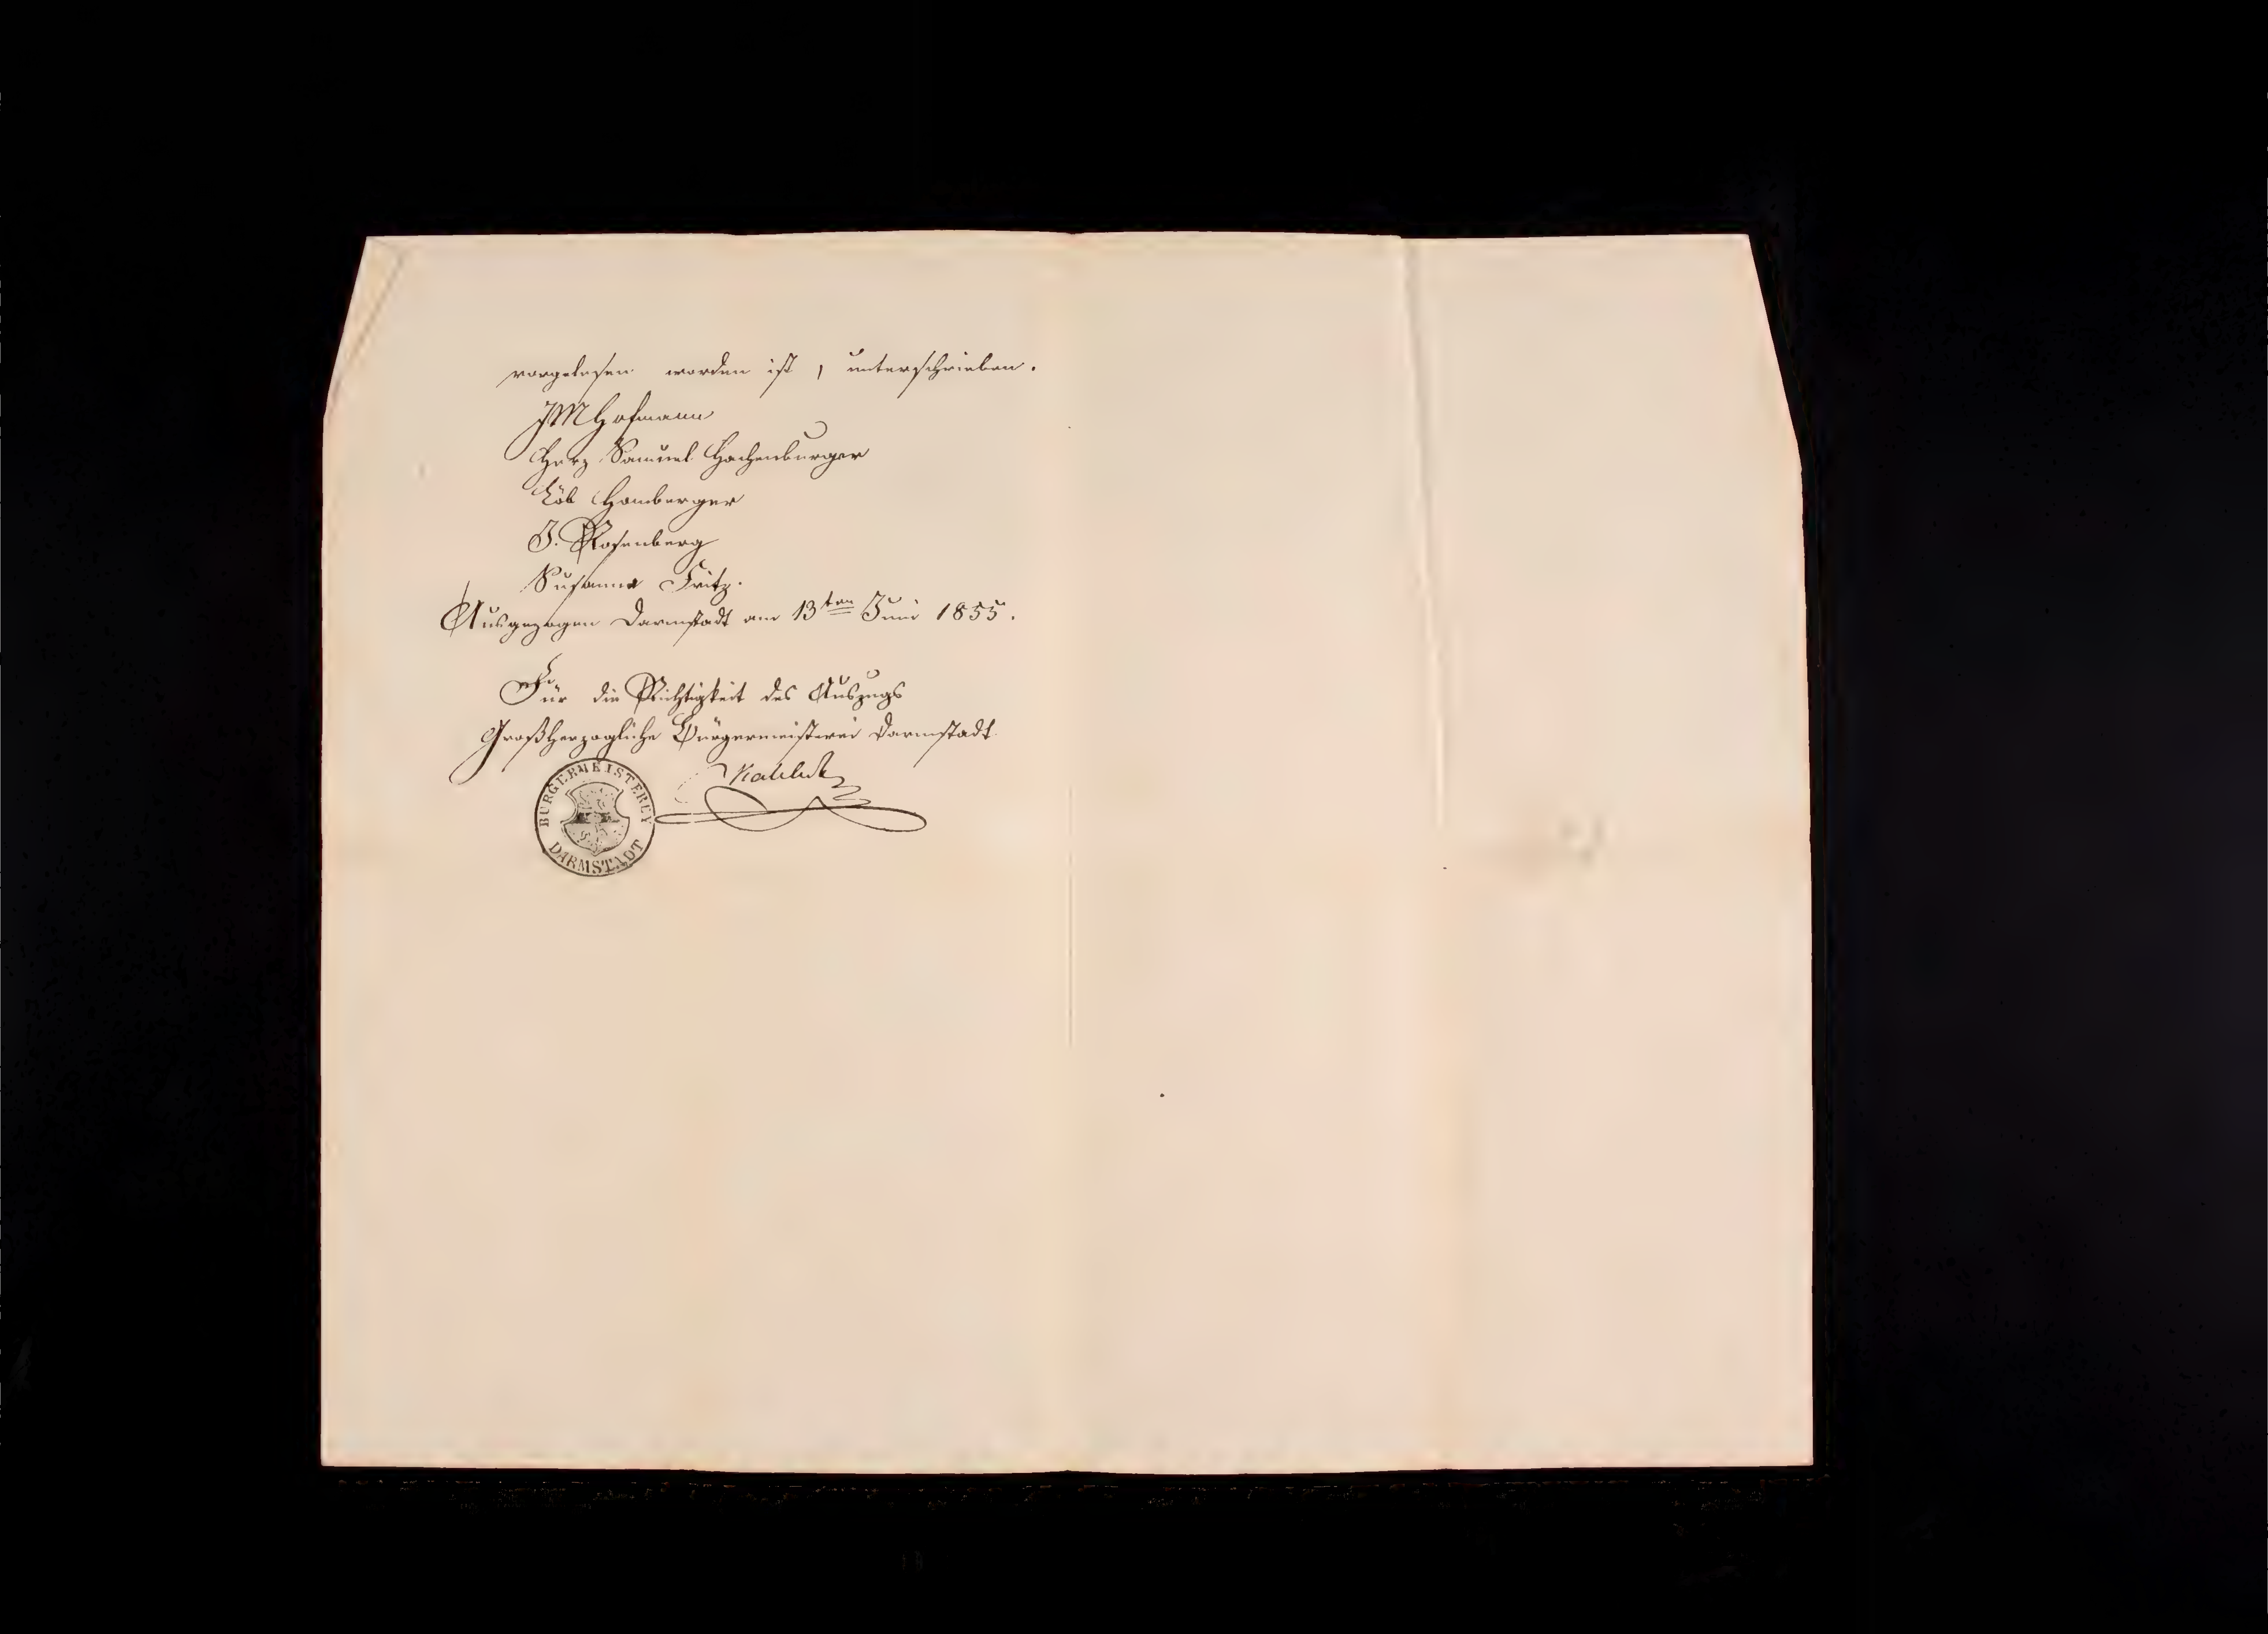 vorgelesen worden ist, unterschrieben.
JM Hofmann
Herz Samuel Hachenburger
Löb Homberger
J. Rosenberg
Susanna Fritz.
Ausgezogen Darmstadt am 13ten Juni 1855.
Für die Richtigkeit des Auszugs
Großherzogliche Bürgermeisterei Darmstadt
BÜRGERMEISTEREY
DARMSTADT